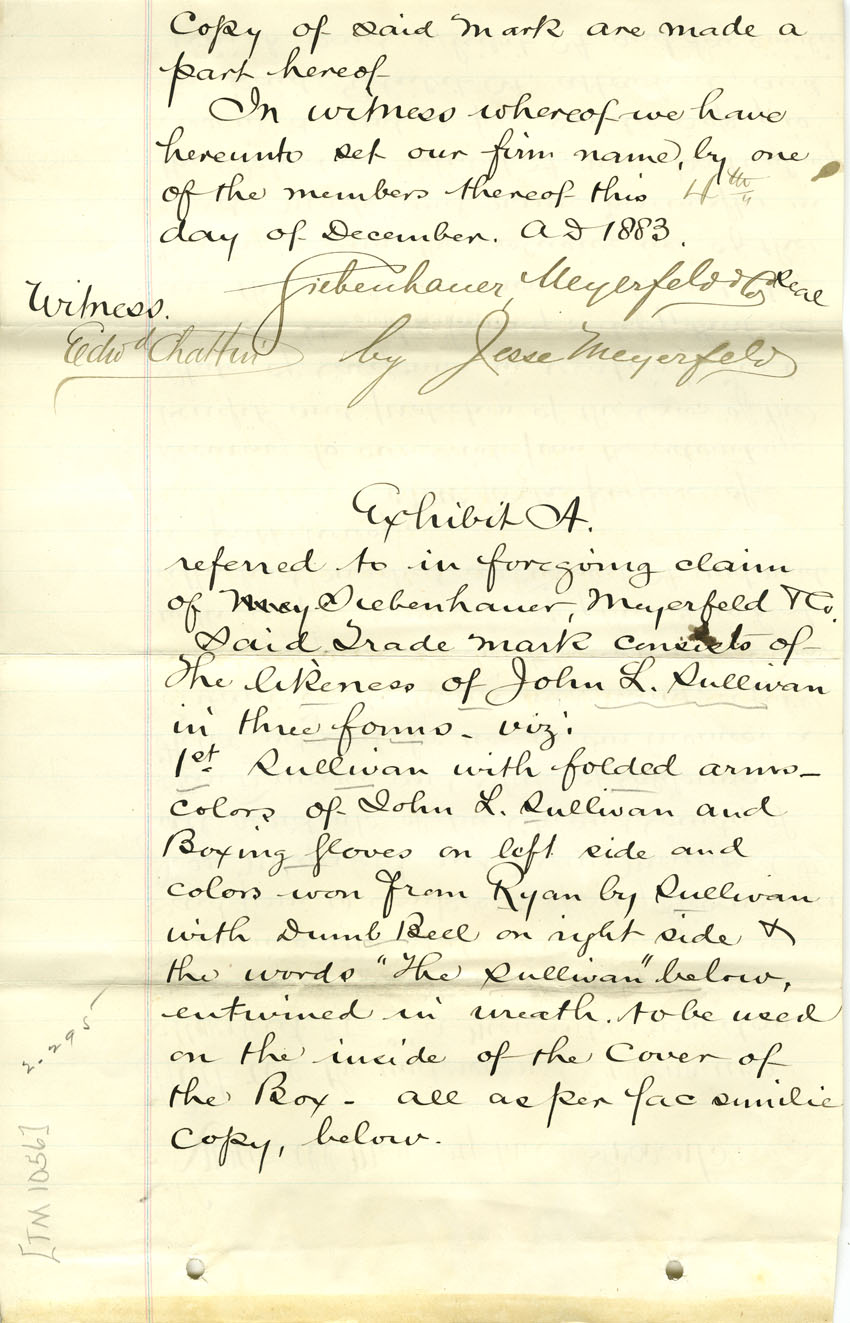 Copy of said mark are made a
part hereof
In witness whereof we have
hereunto set our firm name, by one
of the members thereof this 4th
day of December. A D 1883.
Siebenhauer, Meyerfeld & Co Seal
Witness.
Edwd Chattin by Jesse Meyerfeld
Exhibit A.
referred to in foregoing claim
of Siebenhauer, Meyerfeld & Co.
Said Trade mark consists of
The likeness of John L. Sullivan
in three forms - viz:
1st. Sullivan with folded arms -
colors of John L. Sullivan and
Boxing gloves on left side and
colors won from Ryan by Sullivan
with Dumb Bell on right side &
the words "The Sullivan" below,
entwined in wreath. to be used
on the inside of the Cover of
the Box - all as per fac similie
Copy, below.
2.295
[TM 1056]